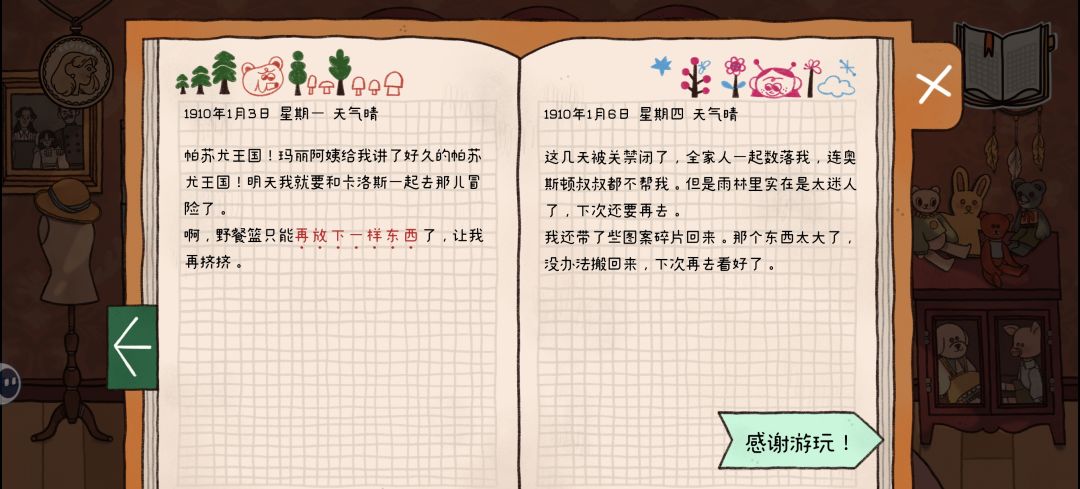 1910年1月3日 星期一 天气晴
帕苏尤王国！玛丽阿姨给我讲了好久的帕苏
尤王国！明天我就要和卡洛斯一起去那儿冒
险了。
啊，野餐篮只能再放下一样东西了，让我
再挤挤。
1910年1月6日 星期四 天气晴
这几天被关禁闭了，全家人一起数落我，连奥
斯顿叔叔都不帮我。但是雨林里实在是太迷人
了，下次还要再去。
我还带了些图案碎片回来。那个东西太大了，
没办法搬回来，下次再去看好了。
感谢游玩！